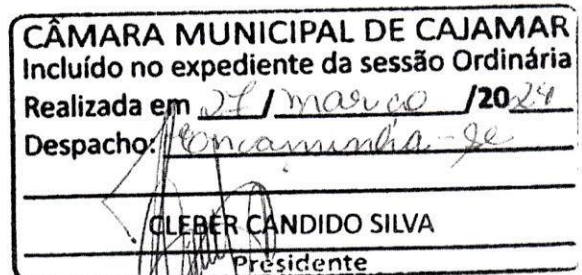 CÂMARA MUNICIPAL DE CAJAMAR
Incluído no expediente da sessão Ordinária
Realizada em 27 / março /2024
Despacho: Encaminha-se
CLEBER CANDIDO SILVA
Presidente